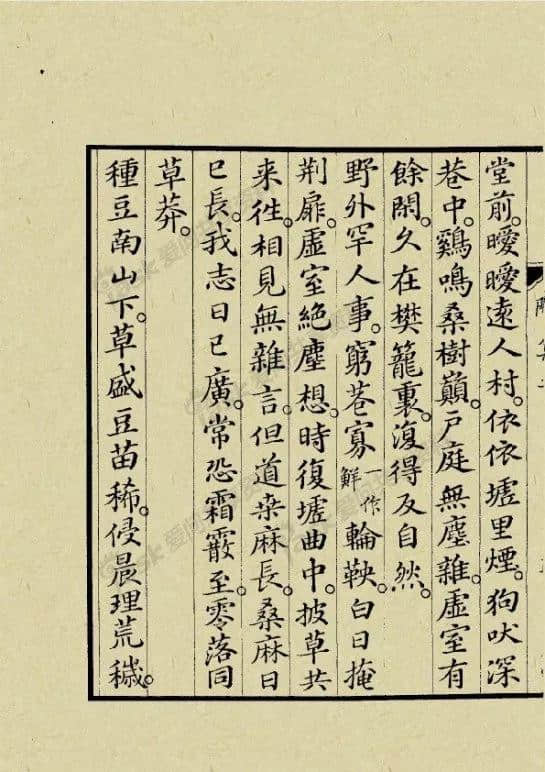 堂前。曖曖遠人村。依依墟里煙。狗吠深
巷中。鷄鳴桑樹巔。戸庭無塵雜。虛室有
餘閑。久在樊籠裏。復得反自然。
野外罕人事。窮巷寡一作鮮輪鞅。白日掩
荆扉。虛室絶塵想。時復墟曲中。披草共
来徃。相見無雜言。但道桒麻長。桑麻日
已長。我志日已廣。常恐霜霰至。零落同
草莽。
種豆南山下。草盛豆苗稀。侵晨理荒穢。